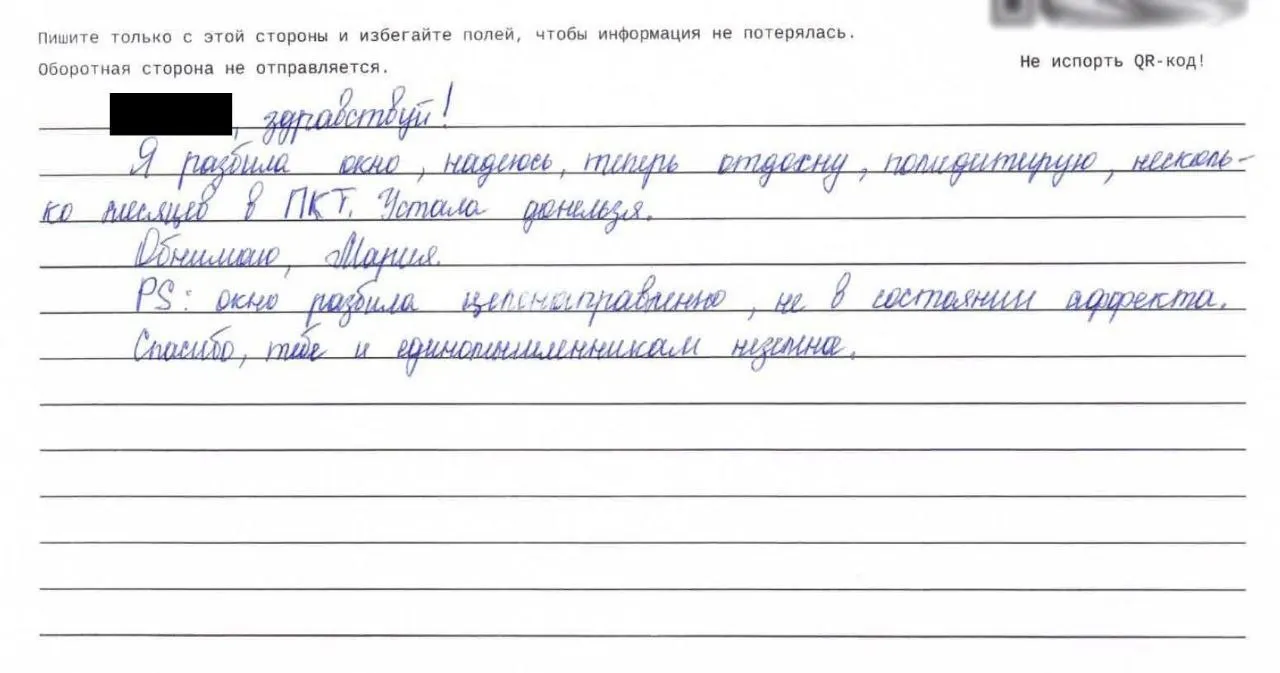 Пишите только с этой стороны и избегайте полей, чтобы информация не потерялась.
Оборотная сторона не отправляется.
Не испорть QR-код!
, здравствуй!
Я разбила окно, надеюсь, теперь отдохну, помедитирую, несколь-
ко месяцев в ПКТ. Устала донельзя.
Обнимаю, Мария.
PS: окно разбила целенаправленно, не в состоянии аффекта.
Спасибо, тебе и единомышленникам неземное.